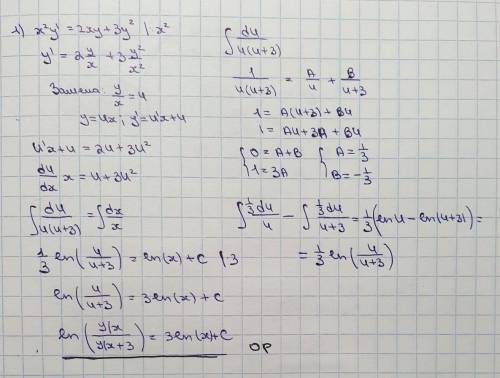 1) x²y' = 2xy + 3y² | :x²
y' = 2 y/x + 3 y²/x²
Замена: y/x = u
y = ux ; y' = u'x + u
u'x + u = 2u + 3u²
du/dx x = u + 3u²
∫ du/u(u+3) = ∫ dx/x
1/3 ln(u/u+3) = ln(x) + C | ·3
ln(u/u+3) = 3ln(x) + C
ln(y/x / y/x+3) = 3ln(x) + C ОР
∫ du/u(u+3)
1/u(u+3) = A/u + B/u+3
1 = A(u+3) + Bu
1 = Au + 3A + Bu
{ 0 = A + B { A = 1/3
{ 1 = 3A { B = -1/3
∫ 1/3 du/u - ∫ 1/3 du/u+3 = 1/3 (ln u - ln(u+3)) =
= 1/3 ln(u/u+3)